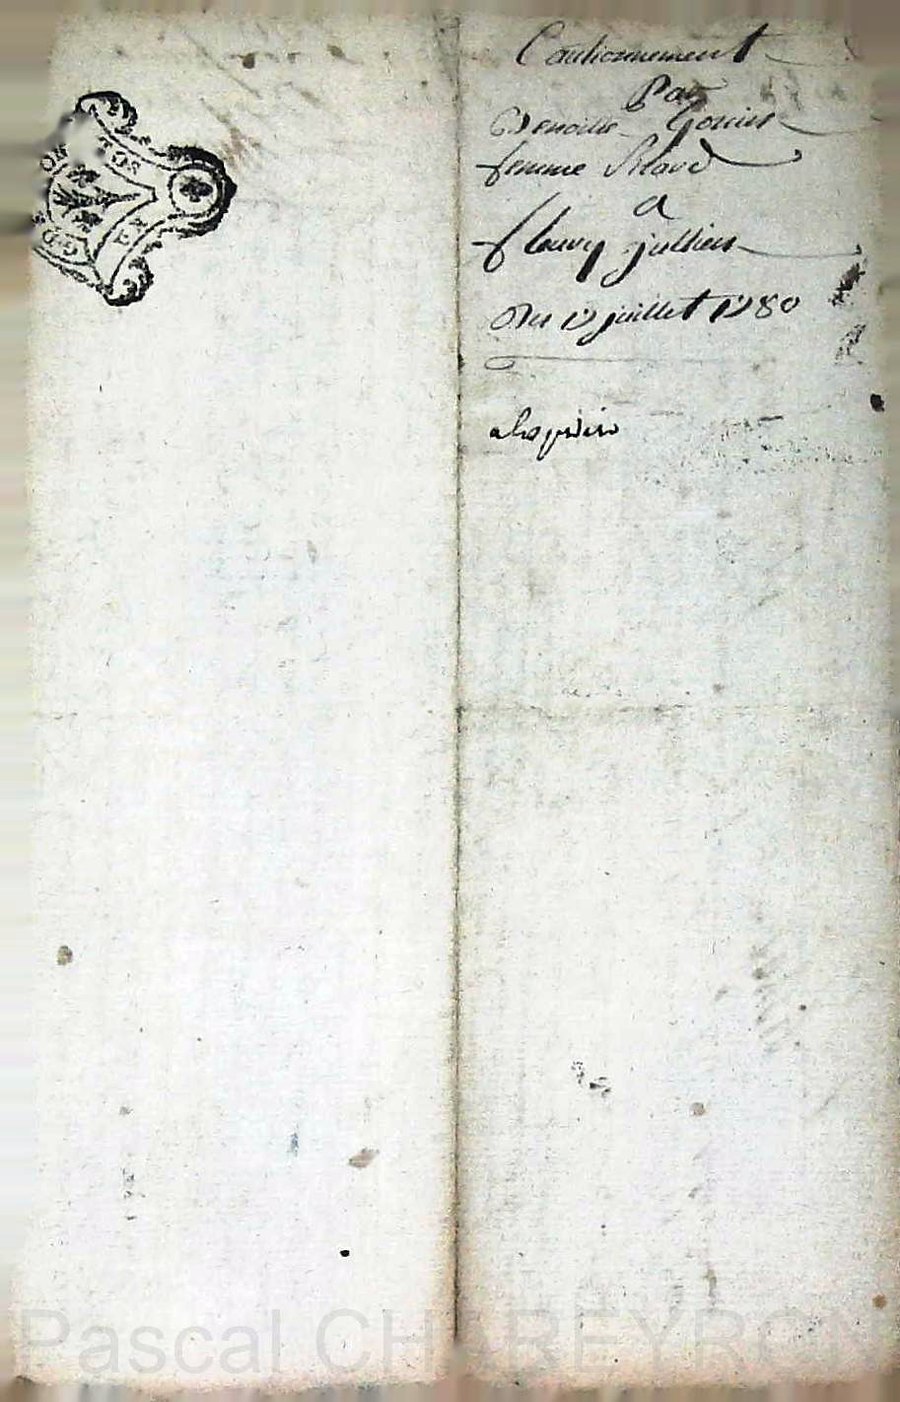 Cautionnement
Par
Benoite Gonin
femme Silavd
a
fleury jullien
Du 17 juillet 1780
Pascal CHAREYRON